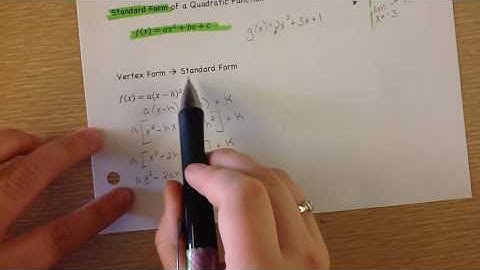 Standard Form of a Quadratic Function
f(x) = ax² + bx + c
g(x) = 2x² + 3x + 1
x = 3
Vertex Form → Standard Form
f(x) = a(x − h)²
a(x-h) ) + K
a[x²-hx h²] + K
a[x²-2h ] + K
ax² - 2ax